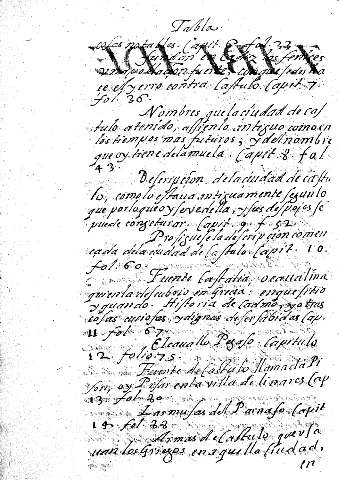 Tabla
cosas notables. Capit. 6. fol. 33.
fol. 36.
Nombres que la ciudad de Cas
tulo a tenido, assiento antiguo como en
los tiempos mas futuros; y del nombre
que oy tiene de la muela. Capit. 8. fol.
43.
Descripcion de la ciudad de Castu
lo, como estaua antiguamente segun lo
que por lo que oy se ve della, y sus despojos se
puede conjeturar. Capit. 9. f. 52.
Prosigue la descripcion comen
cada de la ciudad de Castulo. Capit. 10.
fol. 60.
Fuente Castalia, o caualina
quien la descubrio en Grecia en que sitio
y quando. Historia de Cadmo, y otras
cosas curiosas, y dignas de ser sabidas Cap.
11 fol. 67.
El cauallo Pegaso. Capitulo
12. folio 75.
Fuente de Castulo llamada Pi
son, oy Pisar en la villa de linares Cap
13. fol. 80
Las musas del Parnaso. Capit
14. fol. 88.
Armas de Castulo que vsa
uan los Griegos en aquella ciudad,
en